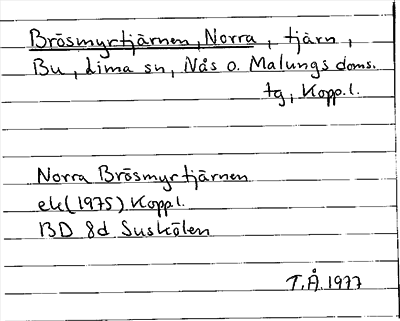 Brösmyrtjärnen, Norra, tjärn,
Bu, Lima sn, Nås o. Malungs doms.
tg, Kopp.l.
Norra Brösmyrtjärnen
ek (1975) Kopp.l.
BD 8d Suskölen
T.Å. 1977